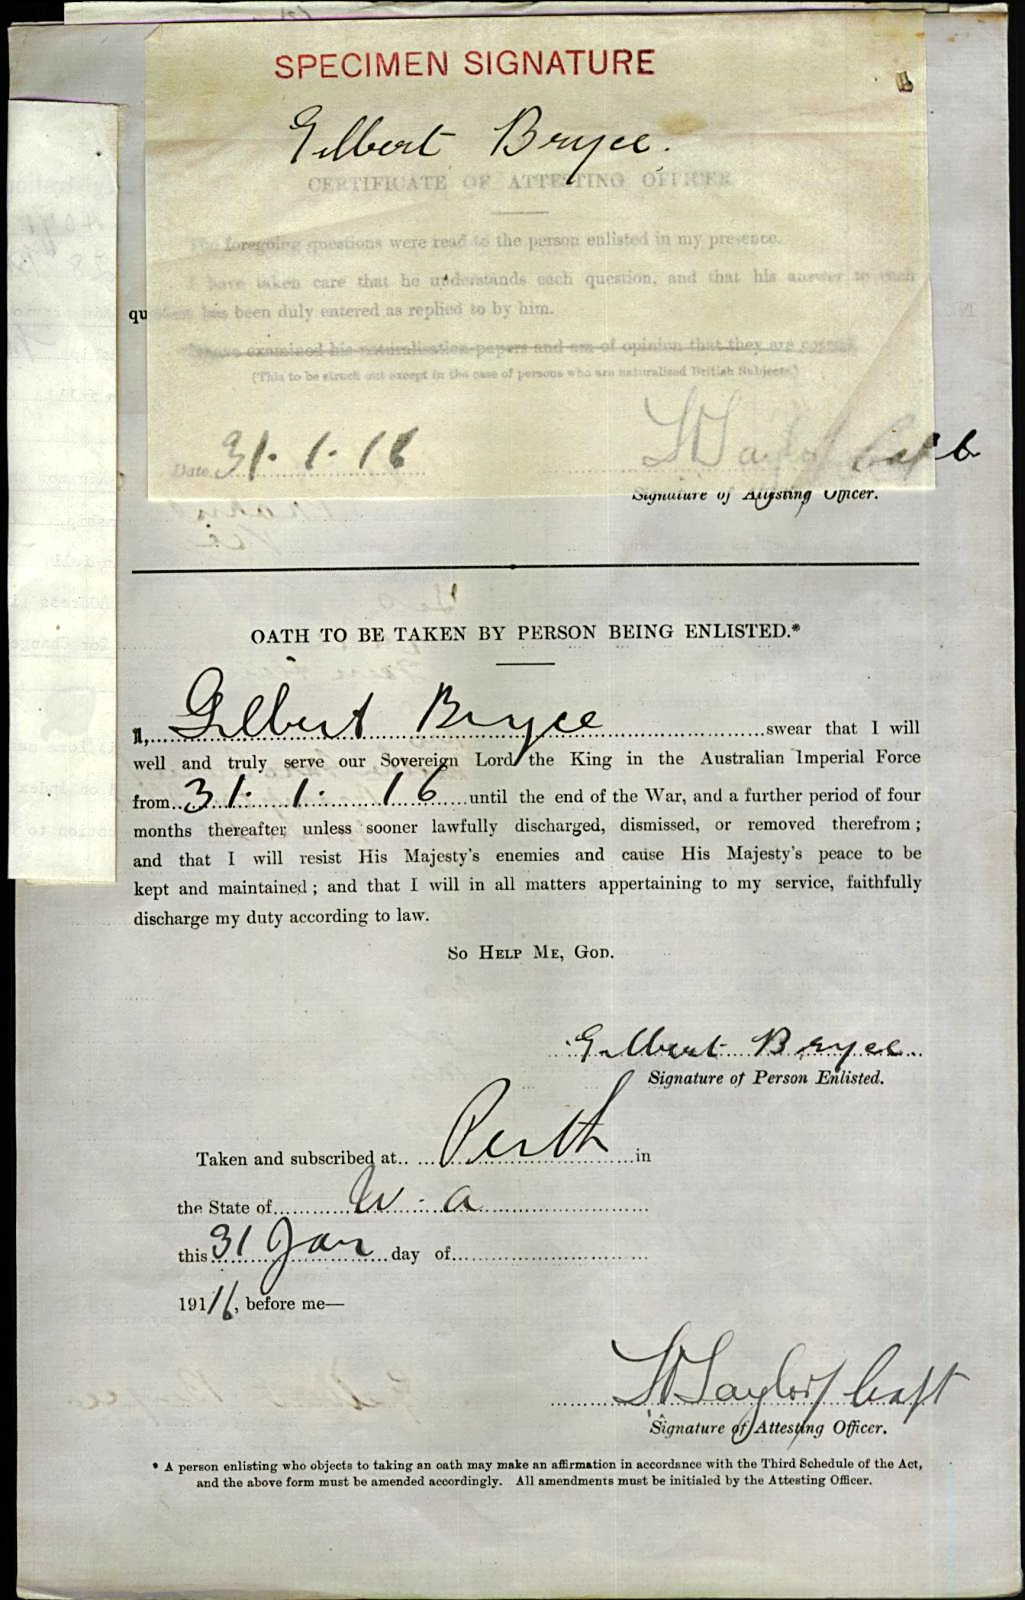 SPECIMEN SIGNATURE
Gilbert Bryce.
CERTIFICATE OF ATTESTING OFFICER
The foregoing questions were read to the person enlisted in my presence.
I have taken care that he understands each question, and that his answer to each
question has been duly entered as replied to by him.
I have examined his naturalisation papers and am of opinion that they are correct.
(This to be struck out except in the case of persons who are naturalised British Subjects.)
Date 31. 1. 16
Taylor Capt
Signature of Attesting Officer.
OATH TO BE TAKEN BY PERSON BEING ENLISTED.*
I, Gilbert Bryce swear that I will
well and truly serve our Sovereign Lord the King in the Australian Imperial Force
from 31. 1. 16 until the end of the War, and a further period of four
months thereafter unless sooner lawfully discharged, dismissed, or removed therefrom ;
and that I will resist His Majesty's enemies and cause His Majesty's peace to be
kept and maintained ; and that I will in all matters appertaining to my service, faithfully
discharge my duty according to law.
SO HELP ME, GOD.
Gilbert Bryce.
Signature of Person Enlisted.
Taken and subscribed at Perth in
the State of W. A
this 31 Jan day of
191 16, before me—
Taylor Capt
Signature of Attesting Officer.
* A person enlisting who objects to taking an oath may make an affirmation in accordance with the Third Schedule of the Act,
and the above form must be amended accordingly. All amendments must be initialed by the Attesting Officer.